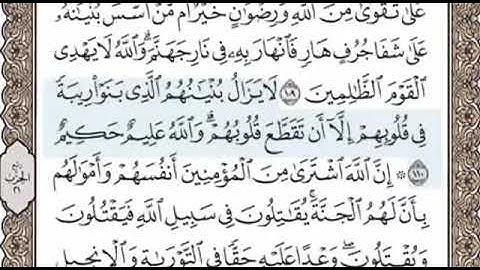 عَلَىٰ تَقْوَىٰ مِنَ ٱللَّهِ وَرِضْوَٰنٍ خَيْرٌ أَم مَّنْ أَسَّسَ بُنْيَٰنَهُۥ
عَلَىٰ شَفَا جُرُفٍ هَارٍ فَٱنْهَارَ بِهِۦ فِى نَارِ جَهَنَّمَ ۗ وَٱللَّهُ لَا يَهْدِى
ٱلْقَوْمَ ٱلظَّٰلِمِينَ ١٠٩ لَا يَزَالُ بُنْيَٰنُهُمُ ٱلَّذِى بَنَوْا۟ رِيبَةً
فِى قُلُوبِهِمْ إِلَّآ أَن تَقَطَّعَ قُلُوبُهُمْ ۗ وَٱللَّهُ عَلِيمٌ حَكِيمٌ
١١٠ ۞ إِنَّ ٱللَّهَ ٱشْتَرَىٰ مِنَ ٱلْمُؤْمِنِينَ أَنفُسَهُمْ وَأَمْوَٰلَهُم
بِأَنَّ لَهُمُ ٱلْجَنَّةَ ۚ يُقَٰتِلُونَ فِى سَبِيلِ ٱللَّهِ فَيَقْتُلُونَ
وَيُقْتَلُونَ ۖ وَعْدًا عَلَيْهِ حَقًّا فِى ٱلتَّوْرَىٰةِ وَٱلْإِنجِيلِ
الحزب
٢١